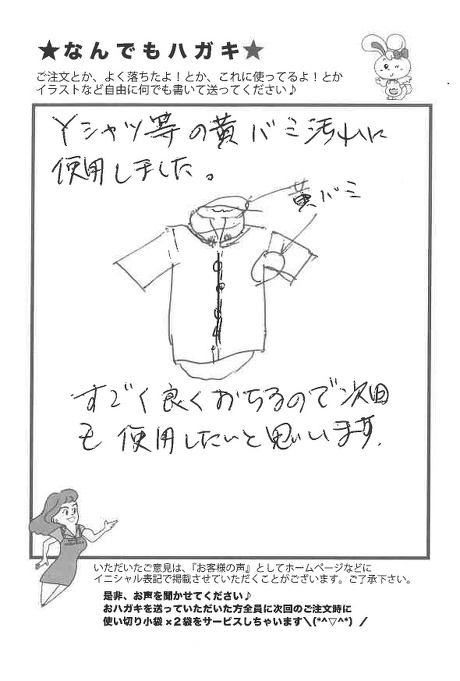 ★なんでもハガキ★
ご注文とか、よく落ちたよ！とか、これに使ってるよ！とか
イラストなど自由に何でも書いて送ってください♪
Yシャツ等の黄バミ汚れに
使用しました。
黄バミ
すごく良くおちるので次回
も使用したいと思います.
いただいたご意見は、『お客様の声』としてホームページなどに
イニシャル表記で掲載させていただくことがございます。ご了承下さい。
是非、お声を聞かせてください♪
おハガキを送っていただいた方全員に次回のご注文時に
使い切り小袋×2袋をサービスしちゃいます＼(*^▽^*)／